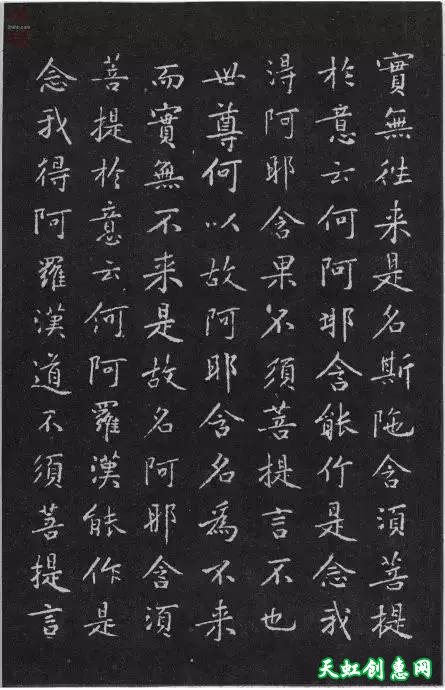 實無往来是名斯陁含須菩提
於意云何阿耶含能作是念我
淂阿耶含果不須菩提言不也
世尊何以故阿耶含名為不来
而實無不来是故名阿耶含須
菩提於意云何阿羅漢能作是
念我得阿羅漢道不須菩提言
天虹创惠网